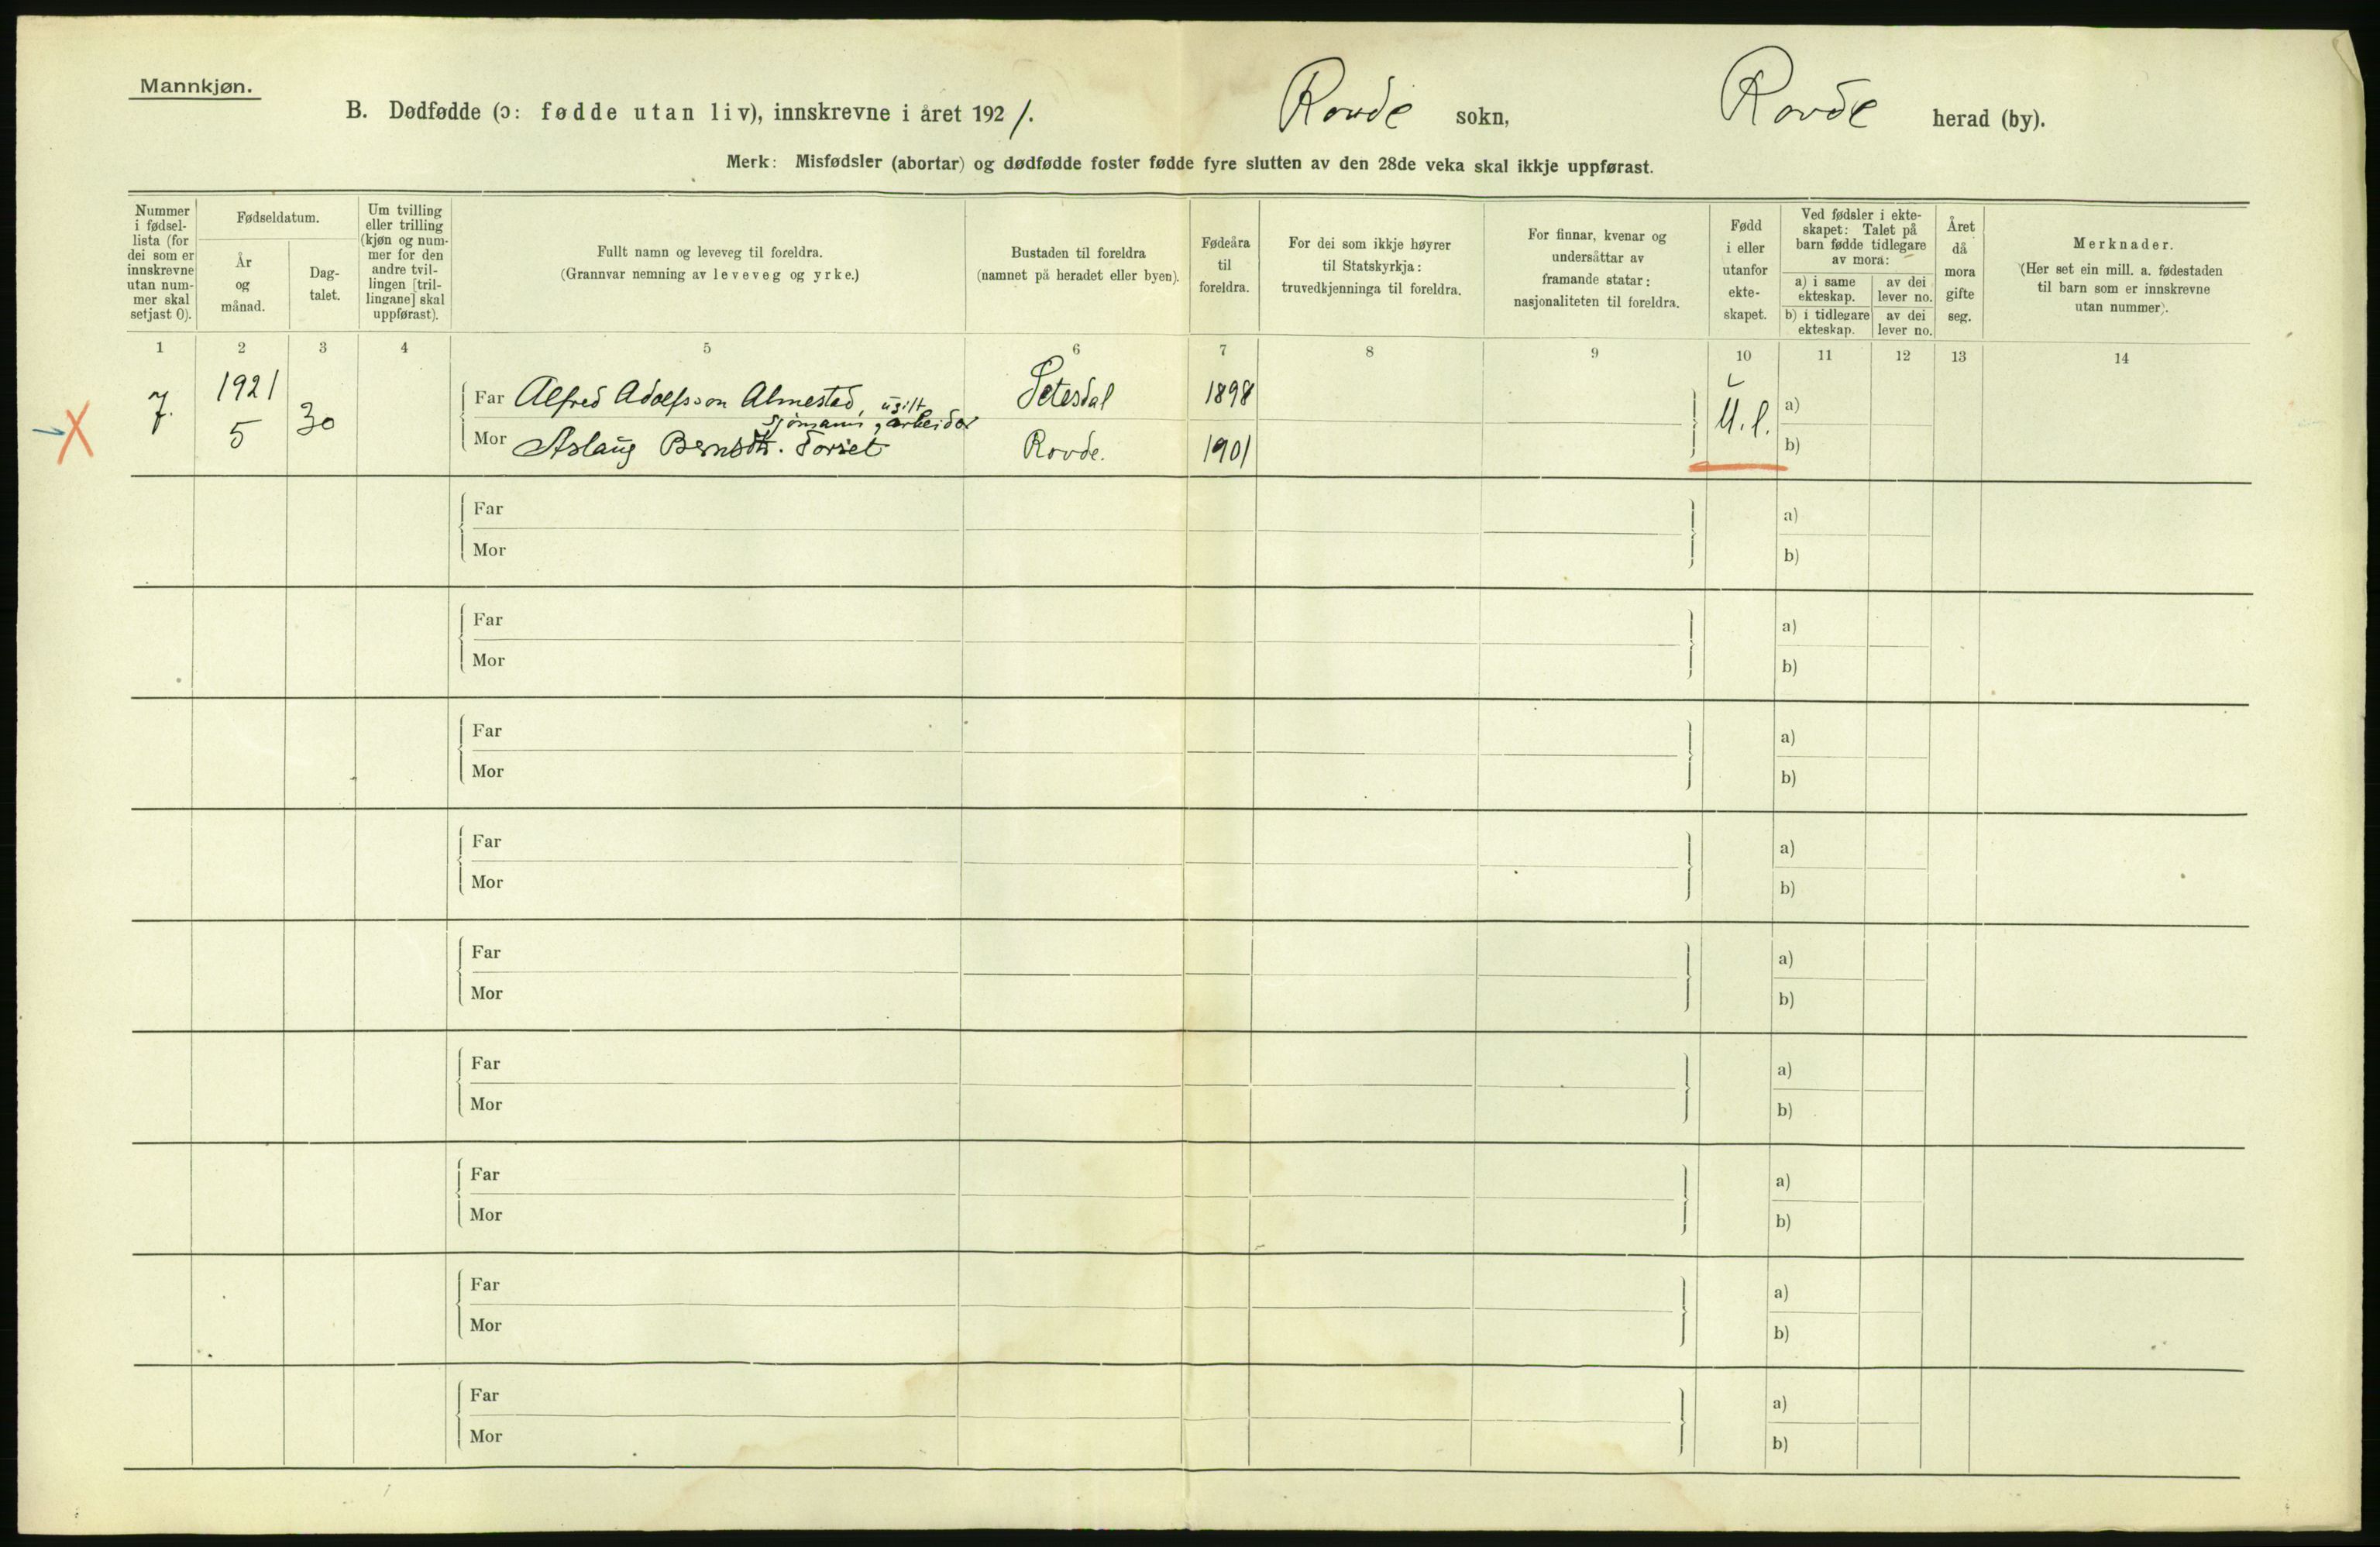 Mannkjøn.
B. Dødfødde (ɔ: fødde utan liv), innskrevne i året 1921. Rovde sokn, Rovde herad (by).
Merk: Misfødsler (abortar) og dødfødde foster fødde fyre slutten av den 28de veka skal ikkje uppførast.
Nummer i fødsel-lista (for dei som er innskrevne utan num-mer skal setjast 0).
Fødseldatum.
År og månad.
Dag-talet.
Um tvilling eller trilling (kjøn og num-mer for den andre tvil-lingen [tril-lingane] skal uppførast).
Fullt namn og leveveg til foreldra.
(Grannvar nemning av leveveg og yrke.)
Bustaden til foreldra
(namnet på heradet eller byen).
Fødeåra til foreldra.
For dei som ikkje høyrer til Statskyrkja: truvedkjenninga til foreldra.
For finnar, kvenar og undersåttar av framande statar: nasjonaliteten til foreldra.
Fødd i eller utanfor ekte-skapet.
Ved fødsler i ekte-skapet: Talet på barn fødde tidlegare av mora:
a) i same ekteskap.
av dei lever no.
b) i tidlegare ekteskap.
av dei lever no.
Året då mora gifte seg.
Merknader.
(Her set ein mill. a. fødestaden til barn som er innskrevne utan nummer).
1 2 3 4 5 6 7 8 9 10 11 12 13 14
7. 1921 5 30
Far Alfred Adolfsson Almestad, ugift Setesdal 1898 a)
Sjømann, arbeidar
U. e.
Mor Aslaug Berntsdtr. Rovde. 1901 b)
Far a)
Mor b)
Far a)
Mor b)
Far a)
Mor b)
Far a)
Mor b)
Far a)
Mor b)
Far a)
Mor b)
Far a)
Mor b)
Far a)
Mor b)
Far a)
Mor b)